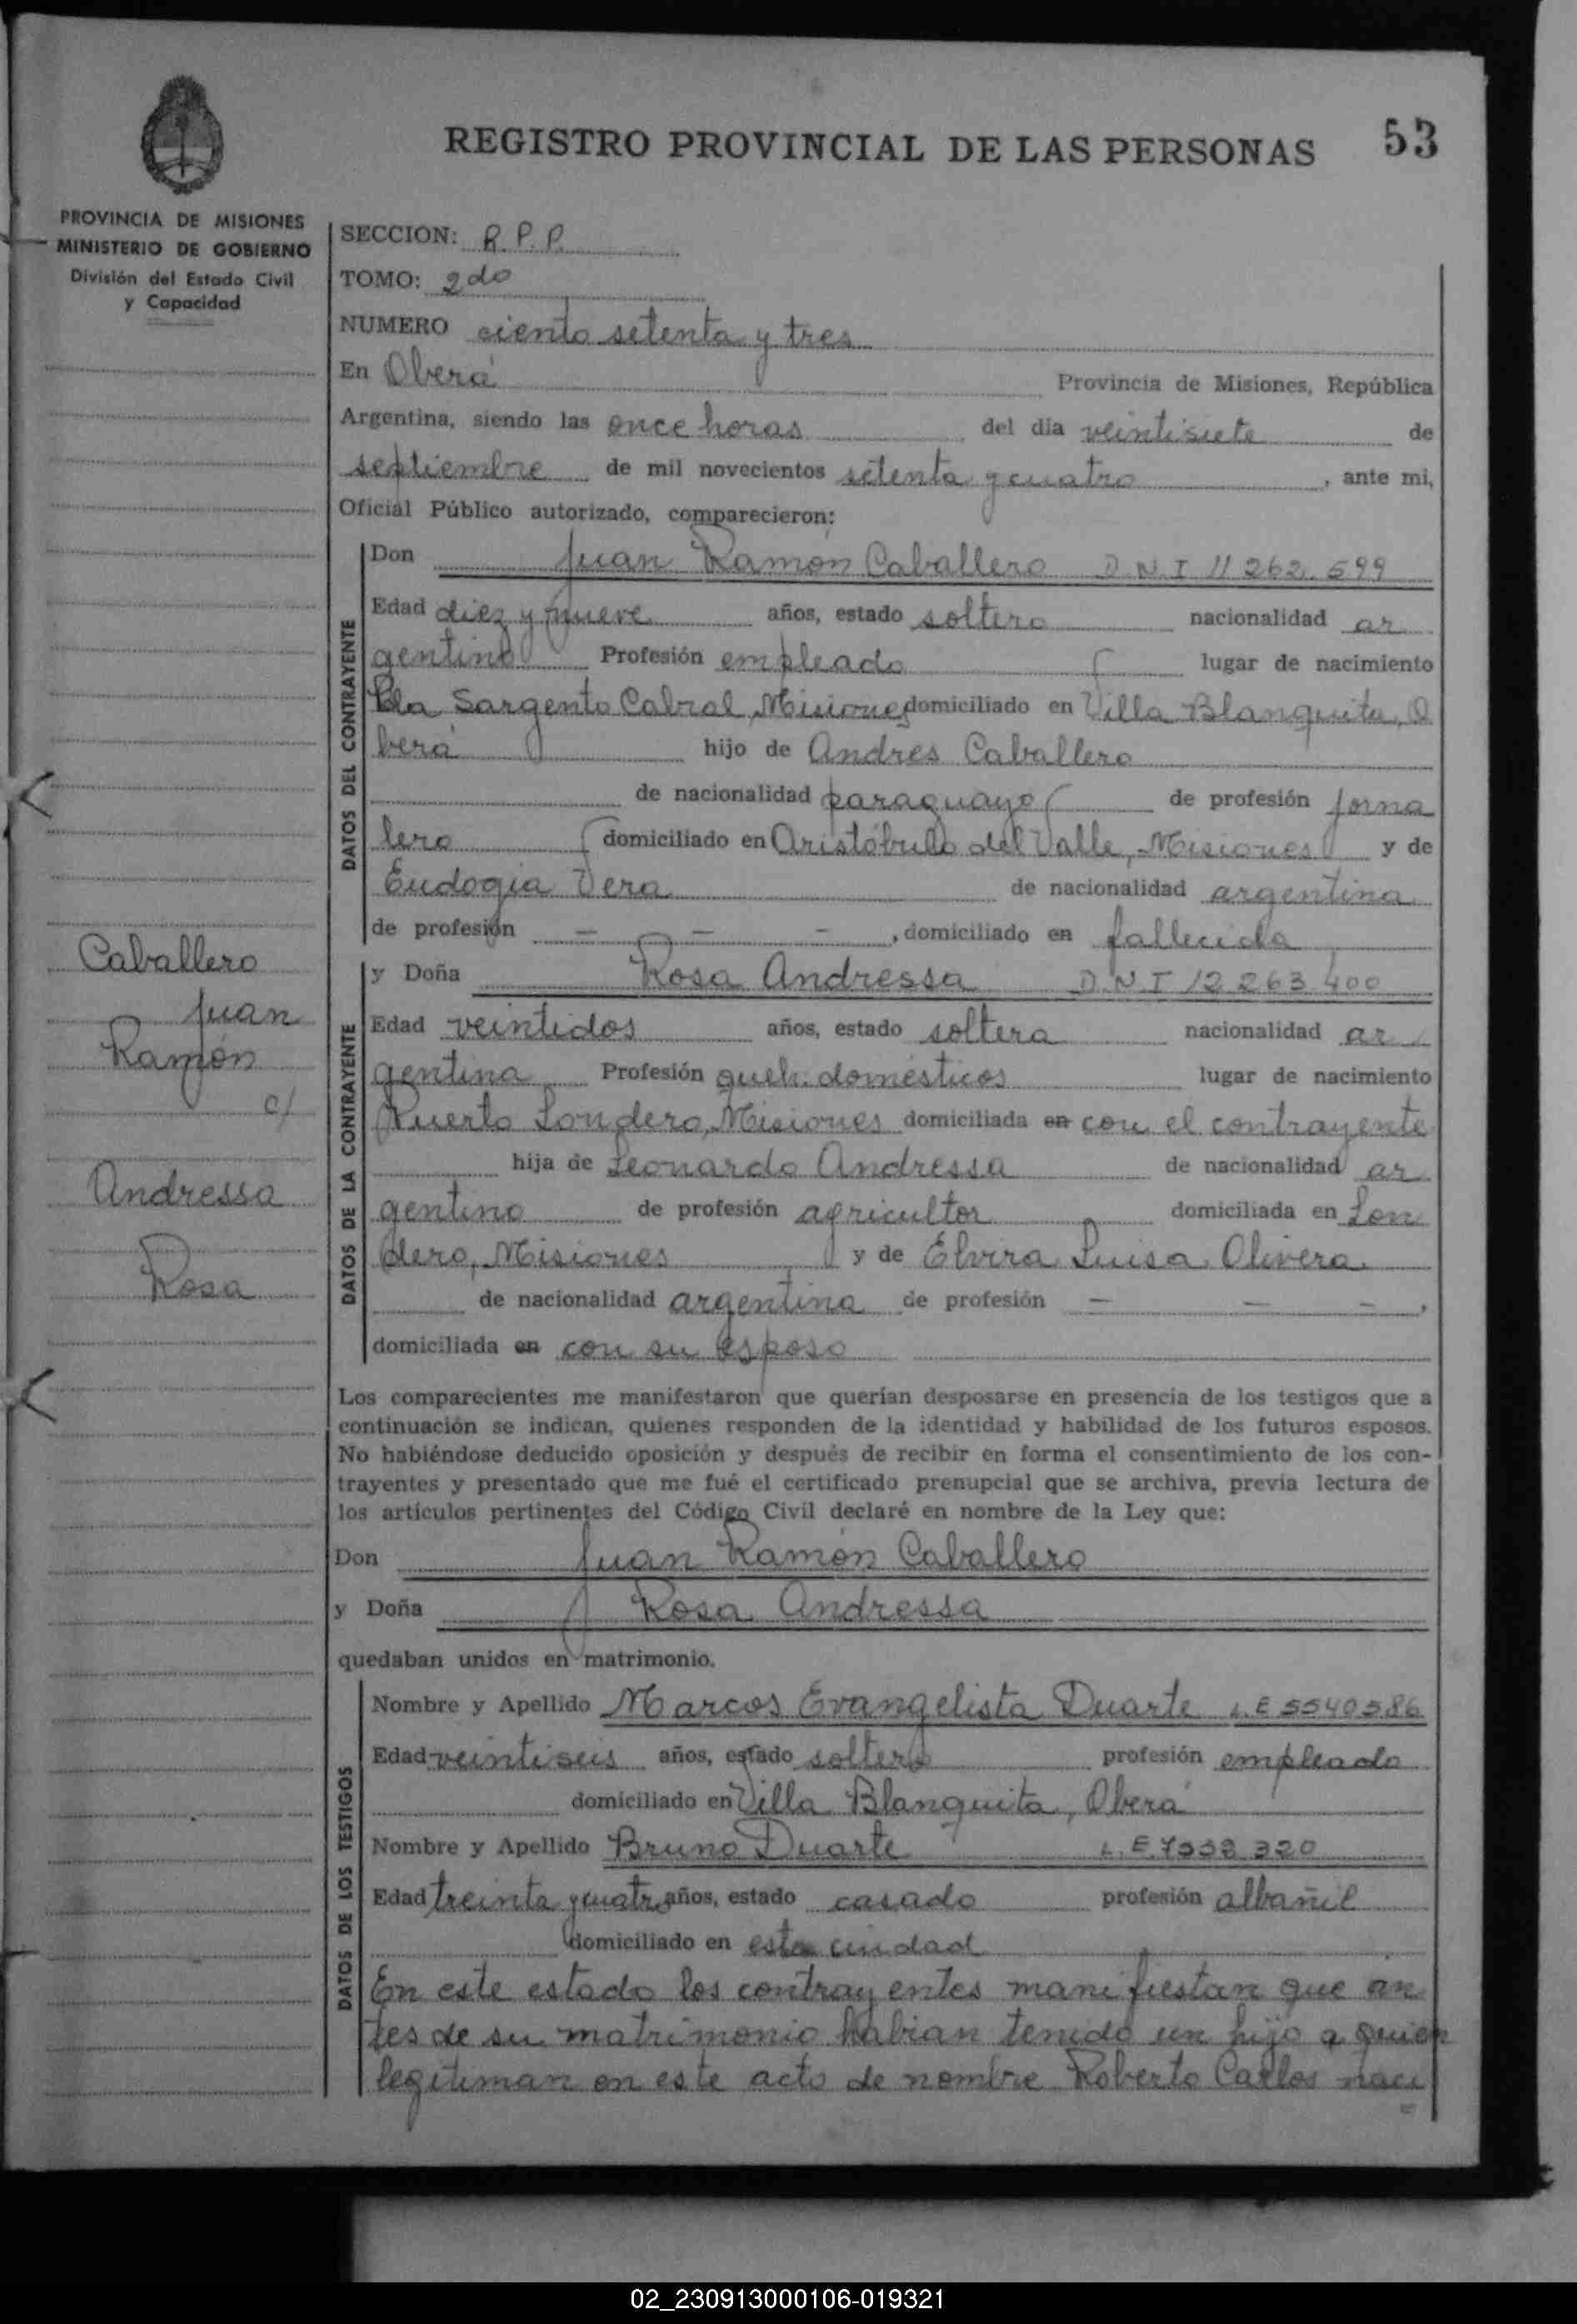 REGISTRO PROVINCIAL DE LAS PERSONAS 53
PROVINCIA DE MISIONES
MINISTERIO DE GOBIERNO
División del Estado Civil
y Capacidad
Caballero
Juan
Ramón
c/
Andressa
Rosa
SECCION: R.P.P.
TOMO: 2do
NUMERO ciento setenta y tres
En Oberá Provincia de Misiones, República
Argentina, siendo las once horas del día veintisiete de
septiembre de mil novecientos setenta y cuatro, ante mi,
Oficial Público autorizado, comparecieron:
DATOS DEL CONTRAYENTE
Don Juan Ramón Caballero D.N.I 11 262.599
Edad diez y nueve años, estado soltero nacionalidad ar
gentino Profesión empleado lugar de nacimiento
Sargento Cabral, Misiones domiciliado en Villa Blanquita, O
berá hijo de Andres Caballero
de nacionalidad paraguayo de profesión jorna
lero domiciliado en Aristóbulo del Valle, Misiones y de
Eudogia Vera de nacionalidad argentina
de profesión - - -, domiciliado en fallecida
DATOS DE LA CONTRAYENTE
y Doña Rosa Andressa D.N.I 12 263 400
Edad veintidos años, estado soltera nacionalidad ar
gentina Profesión queh. domésticos lugar de nacimiento
Puerto Londero, Misiones domiciliada en con el contrayente
hija de Leonardo Andressa de nacionalidad ar
gentino de profesión agricultor domiciliada en Lon
dero, Misiones y de Elvira Luisa Olivera
de nacionalidad argentina de profesión - - -,
domiciliada en con su esposo
Los comparecientes me manifestaron que querían desposarse en presencia de los testigos que a
continuación se indican, quienes responden de la identidad y habilidad de los futuros esposos.
No habiéndose deducido oposición y después de recibir en forma el consentimiento de los con-
trayentes y presentado que me fué el certificado prenupcial que se archiva, previa lectura de
los artículos pertinentes del Código Civil declaré en nombre de la Ley que:
Don Juan Ramón Caballero
y Doña Rosa Andressa
quedaban unidos en matrimonio.
DATOS DE LOS TESTIGOS
Nombre y Apellido Marcos Evangelista Duarte L.E 5540586
Edad veintiseis años, estado soltero profesión empleado
domiciliado en Villa Blanquita, Oberá
Nombre y Apellido Bruno Duarte L.E.
Edad treinta y cuatro años, estado casado profesión albañil
domiciliado en esta ciudad
En este estado los contrayentes manifiestan que an
tes de su matrimonio habian tenido un hijo a quien
legitiman en este acto de nombre Roberto Carlos naci
02_230913000106-019321